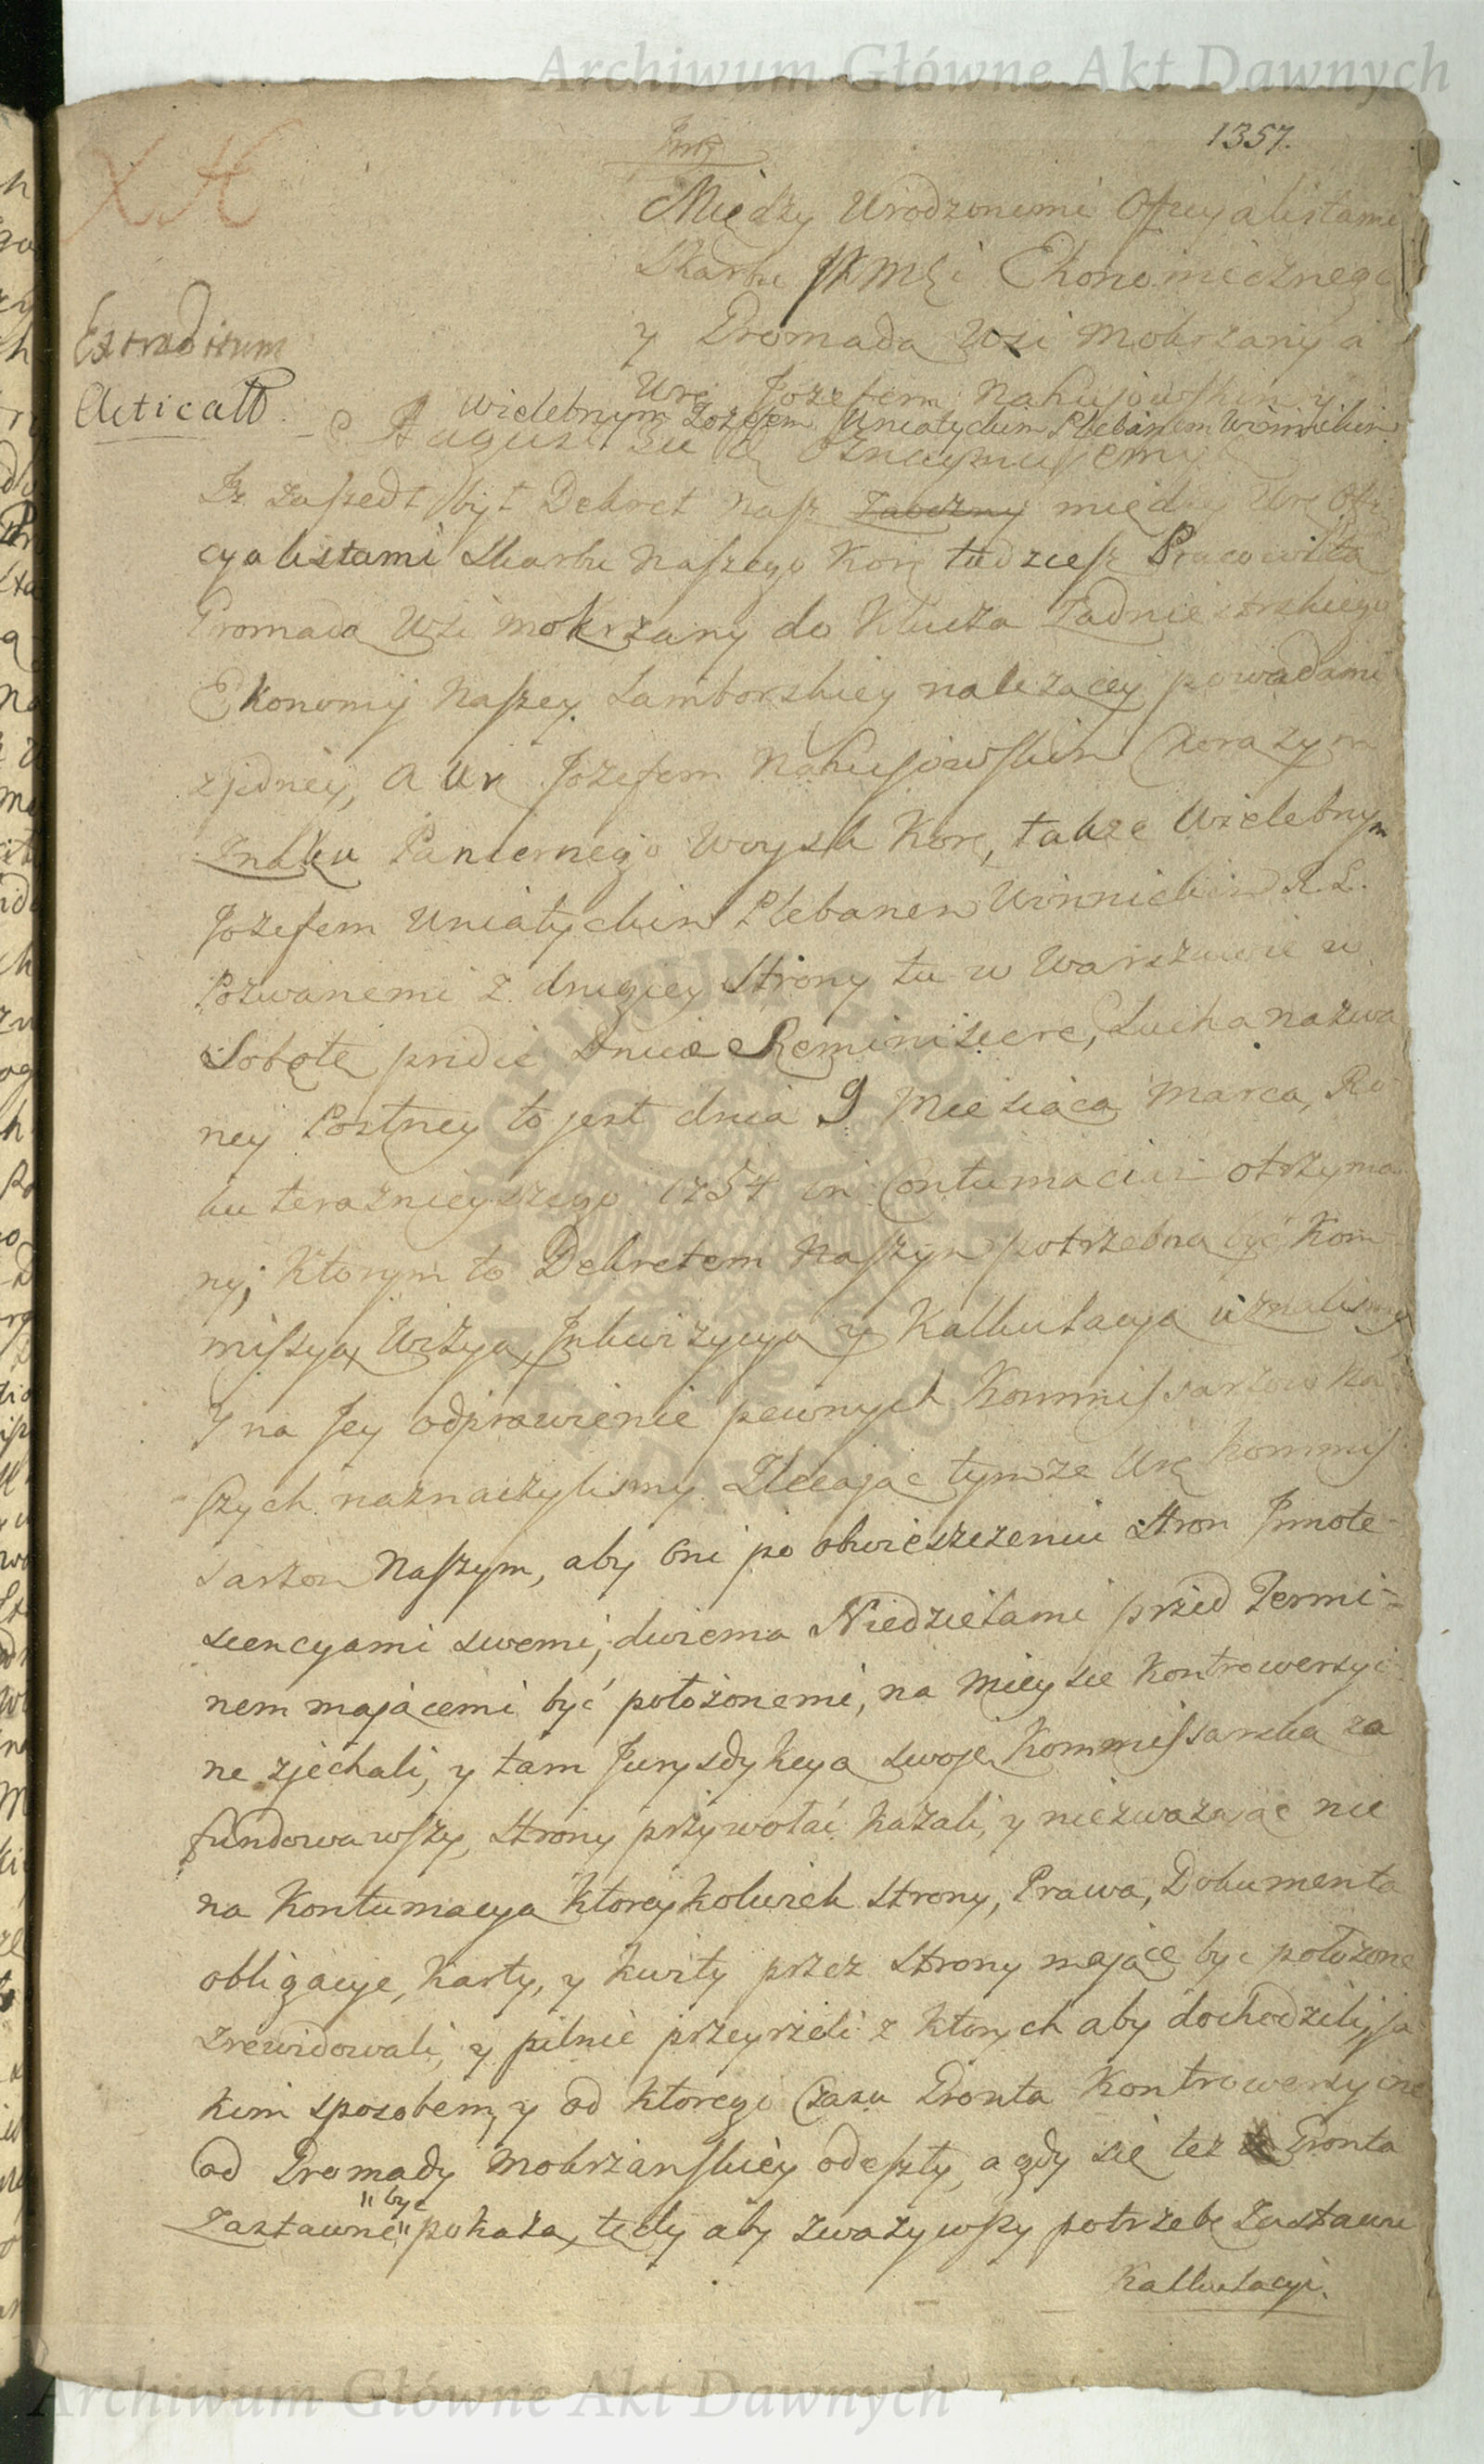 Archiwum Główne Akt Dawnych
1357.
Między Urodzonemi Offycyalistami
Skarbu JKMći Ekonomicznego
y Gromadą Wsi Mokrzany a
Extraditum
Urę Jozefem Nahujowskim y
Acticatt
Wielebnym Jozefem Uniatyckim Plebanem Winnickim
August 3ci Oznaymujemy
Iz zaszedł był Dekret Nasz Zaoczny między Urę Offi
cyalistami Skarbu Naszego Korę tudziesz Pracowitą
Gromadą Wsi Mokrzany do Klucza Zadniestrskiego
Ekonomij Naszey Samborskiey należącey powodami
z jedney, a Ur Jozefem Nahujowskim Chorążym
Znaku Pancernego Woysk Korę, także Wielebnym
Jozefem Uniatyckim Plebanem Winnickim R. L.
Pozwanemi z drugiey Strony tu w Warszawie w
Sobotę pridie Dnicae Reminiscere, Sucha nazwa
ney Postney to jest dnia 9 Miesiąca Marca, Ro
ku teraznieyszego 1754 in Contumaciam otrzyma
ny; Ktorym to Dekretem Naszym potrzebną być Kom
missyą, Wizyą, Inkwizycyą y Kalkulacyą uznalismy
J na Jey odprawienie pewnych Kommissarzow Na
szych naznaczylismy Zlecając tymze Urę Kommis
sarzom Naszym, aby Oni po obwieszczeniu Stron Innote-
scencyami swemi, dwiema Niedzielami przed Termi-
nem mającemi być położonemi, na mieysce Kontrowersyi-
ne zjechali, y tam Jurysdykcyą swoję Kommissarską za
fundowawszy, Strony przywołać kazali, y niezważając nic
na Kontumacyą ktoreykolwiek Strony, Prawa, Dokumenta
obligacye, Karty, y kwity przez Strony mające być położone
zrewidowali, y pilnie przeyrzeli z ktorych aby dochodzili, ja
kim sposobem, y od ktorego Czasu Gronta Kontrowersyine
od Gromady Mokrzanskiey odeszły, a gdy się też Gronta
"być
Zastawne" pokażą, tedy aby zważywszy potrzebę Zastawu
Kalkulacyi.
Archiwum Główne Akt Dawnych